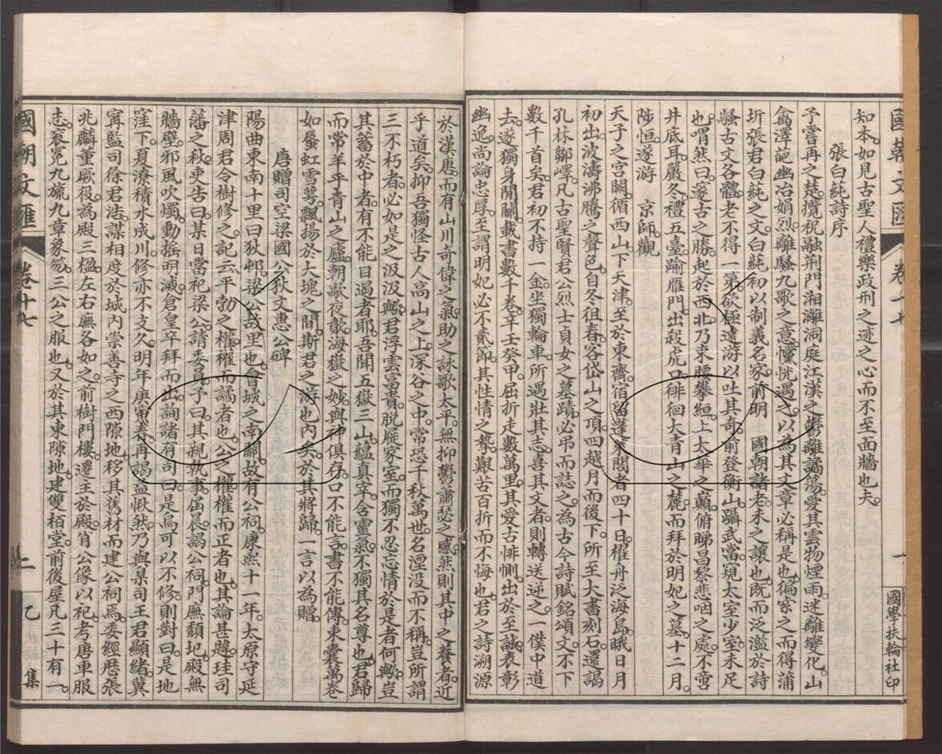 國朝文匯
卷十七
一
國學扶輪社印
知本如見古聖人禮樂政刑之迹之心而不至面牆也夫
張白蒓詩序
予嘗再之楚攬祝融荆門湘灕洞庭江漢之鬱離譎蕩愛其雲物煙雨迷離變化山
禽澤葩幽冶娟烈離騷九歌之意懭恍遇之以為其文章必稱是也徧索之而得蒲
圻張君白蒓之文白蒓初以制義名家前明 國朝諸老未之讓也既而泛濫於詩
騷古文各體老不得一第欲極遠游以吐其奇前登衡山躡武當窺太室少室未足
也喟然曰邃古之勝起於西北乃束腰攀絙上太華之巔俯睇昌黎悲咽之處不啻
井底耳嚴冬禮五臺踰雁門出殺虎口徘徊大青山之麓而拜於明妃之墓十二月
陟恒遂游 京師觀
天子之宮闕循西山下天津至於東齊宿留蓬萊閣者四十日櫂舟泛海島眺日月
初出波濤沸騰之聲色自冬徂春客岱山之頂四越月而後下所至大書刻石還謁
孔林鄒嶧凡古聖賢君公烈士貞女之墓蹟必弔而誌之為古今詩賦銘頌文不下
數千首矣君初不持一金坐獨輪車所遇壯其志喜其文者則轉送逆之一僕中道
去遂獨身閒關載書數千卷羊壬癸甲屈折走數萬里其愛古悱惻出於至誠表彰
幽逸尚論忠厚至謂明妃必不貳節其性情之摯艱苦百折而不悔也君之詩溯源
於漢唐而有山川奇偉之氣助之詠歌太平無抑鬱蕭瑟之感然則其中之養者近
乎道矣抑吾獨怪古人高山之上深谷之中常恐千秋萬世名湮没而不稱豈所謂
三不朽者必如是之汲汲歟君浮雲富貴脱屣家室而獨不忍忘情於是者何歟豈
其蓄於中者有不能自遏者耶吾聞五嶽三山蘊真萃含靈氣不獨其名尊也君歸
而常羊乎青山之廬朝歊夜歊海嶽之妙與神俱存口不能言書不能傳束囊萬卷
如蜃虹雲雩飄揚於大塊之間斯君之游也内矣於其將歸一言以為贈
唐贈司空梁國公狄文惠公碑
陽曲東南十里曰狄邨梁公故里也會城之南關故有公祠康熙十一年太原守延
津周君令樹修之記云平勃之權權而譎者也公之權權而正者也其論甚韙珪司
藩之秋吏告曰某日當祀梁公請委員予曰其親執事屆晨謁公祠門廡頽圮殿無
牆壁邪風吹燭動揺明滅倉皇卒拜而出詢諸有司曰是烏可以不修則對曰是地
窪下夏潦積水成川修亦不支久明年庚寅春再謁益愀然乃與臬司王君顯緒冀
寧監司徐君浩謀相度於城内崇善寺之西隙地移其舊材而建公祠焉委經歷張
兆麟董厥役為殿三楹左右廡各如之前樹門樓遷主於殿肖公像以祀考唐車服
志衮冕九旒九章象笏三公之服也又於其東隙地建雙柏堂前後屋凡三十有一
國朝文匯
卷十七
上
乙
集